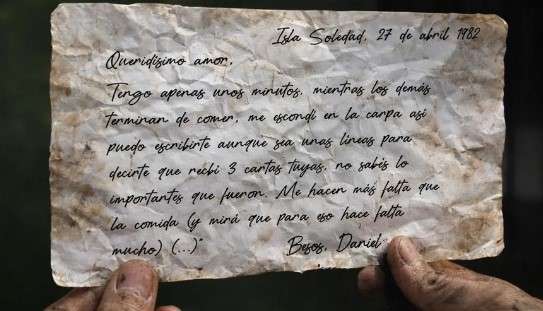 Isla Soledad, 27 de abril 1982
Queridísimo amor,
Tengo apenas unos minutos, mientras los demás
terminan de comer, me escondí en la carpa así
puedo escribirte aunque sea unas líneas para
decirte que recbí 3 cartas tuyas, no sabés lo
importantes que fueron. Me hacen más falta que
la comida (y mirá que para eso hace falta
mucho) (...)"
Besos, Daniel